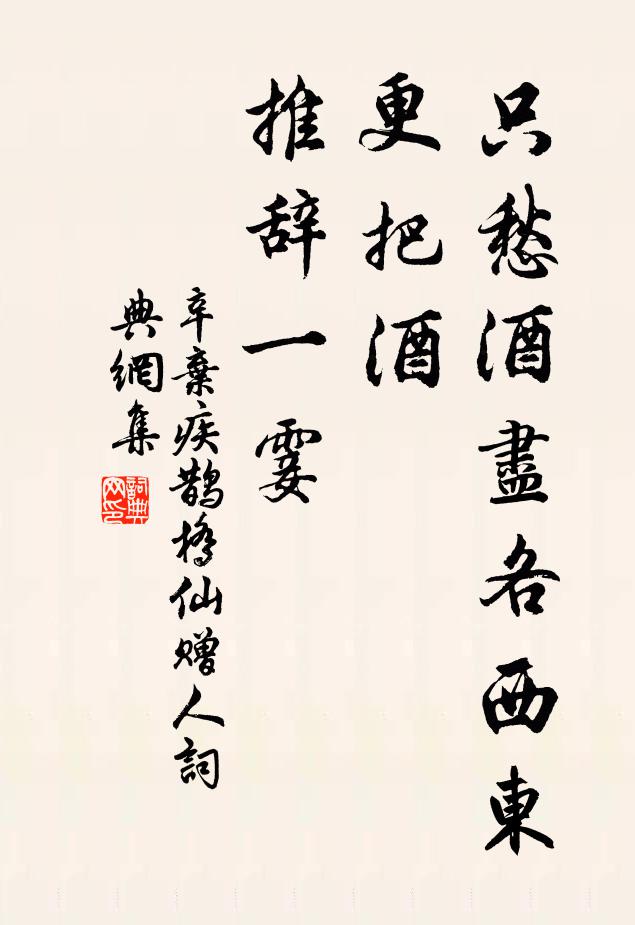 只愁酒盡各西東
更把酒
推辞一霎
辛棄疾鵲橋仙赠人詞
典網集
詞典
网印